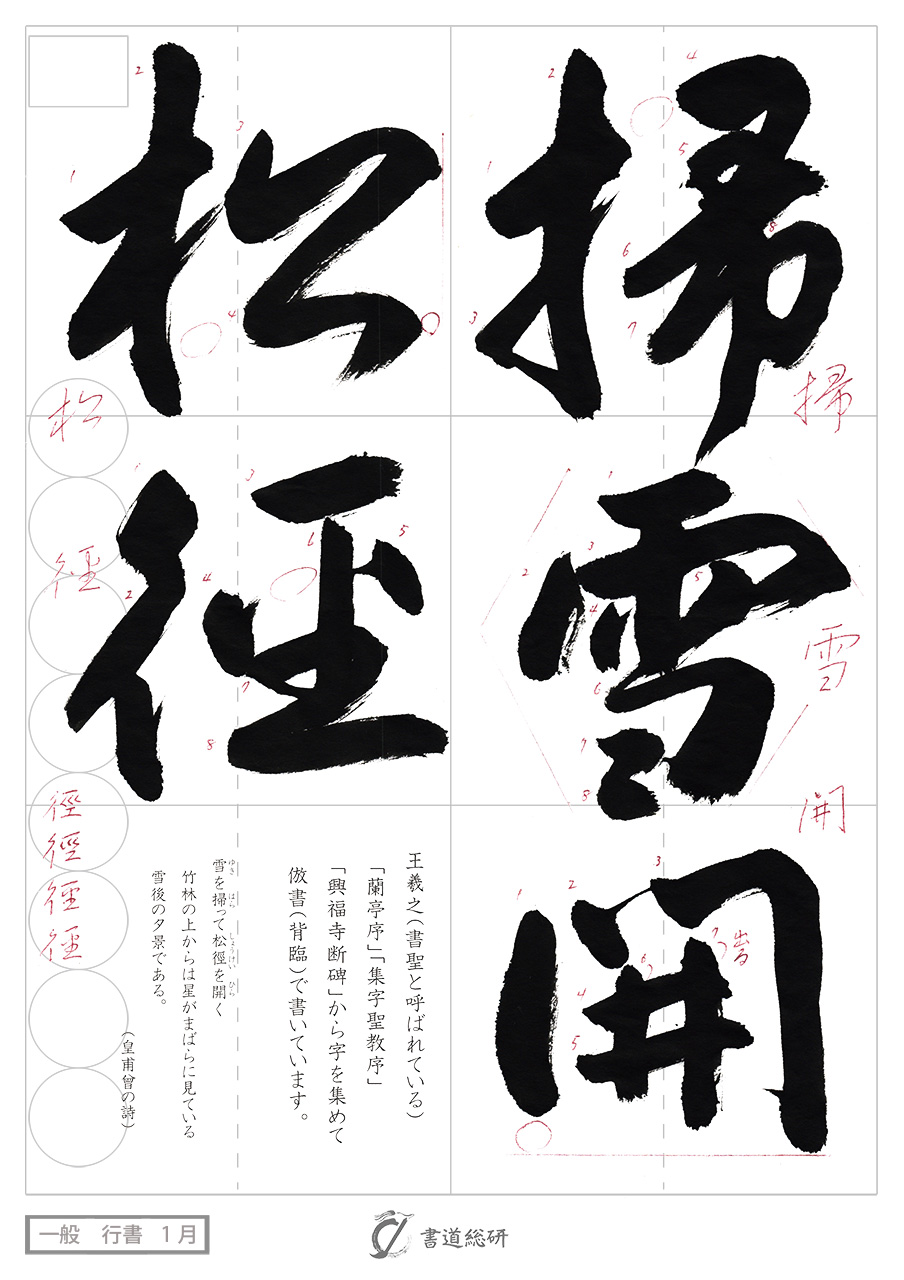 掃雪開
松徑
掃
雪
開
松
徑
徑
徑
径
径
王羲之(書聖と呼ばれている)
「蘭亭序」「集字聖教序」
「興福寺断碑」から字を集めて
倣書(背臨)で書いています。
雪を掃って松徑を開く
ゆき はら しょうけい ひら
竹林の上からは星がまばらに見ている
雪後の夕景である。
(皇甫曾の詩)
一般 行書 1月
書道総研